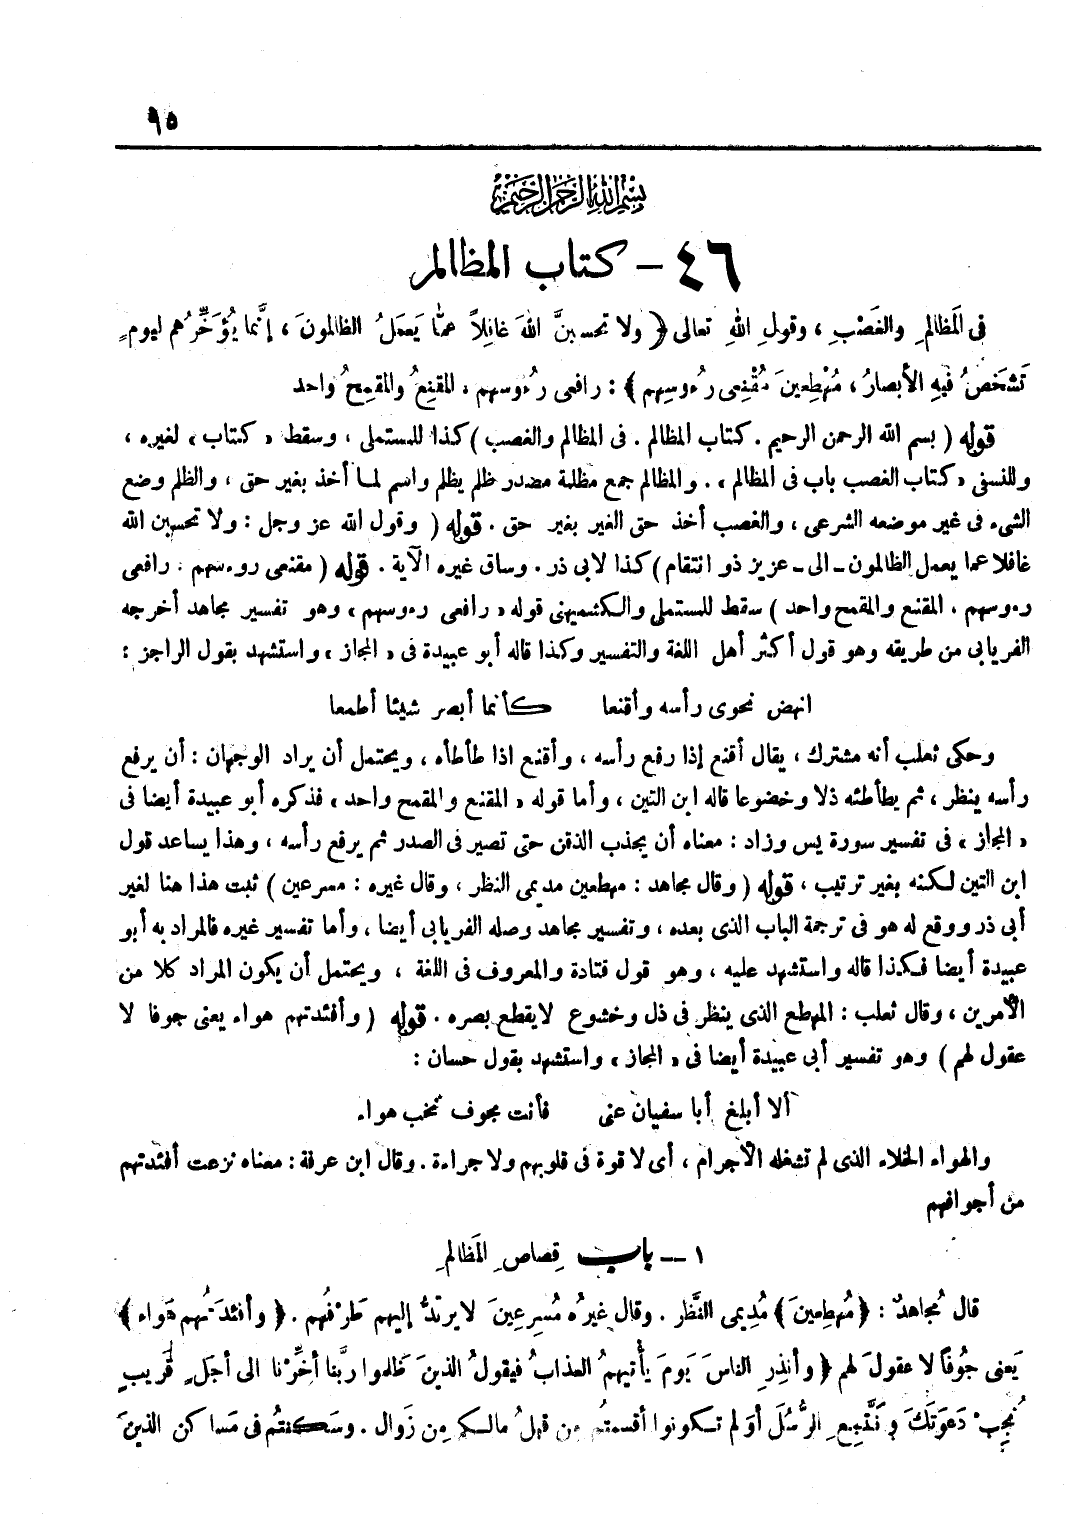 ٩٥
بسم الله الرحمن الرحيم
٤٦ - كتاب المظالم
فى المَظالمِ والغَصْبِ ، وقولِ اللهِ تعالى ﴿ ولا تحسبنَّ اللهَ غافِلاً عمَّا يَعمَلُ الظالمونَ ، إنَّما يُؤَخِّرُهم ليومٍ
تَشخَصُ فيهِ الأبصارُ ، مُهْطِعينَ مُقْنِعى رُءوسِهم ﴾ : رافعى رُءوسهم . المُقنِعُ والمُقمِحُ واحد
قوله ( بسم الله الرحمن الرحيم . كتاب المظالم . فى المظالم والغصب ) كذا للمستملى ، وسقط « كتاب » لغيره ،
وللنسفى « كتاب الغصب باب فى المظالم » . والمظالم جمع مظلمة مصدر ظلم يظلم واسم لما أخذ بغير حق ، والظلم وضع
الشىء فى غير موضعه الشرعى ، والغصب أخذ حق الغير بغير حق . قوله ( وقول الله عز وجل : ولا تحسبن الله
غافلا عما يعمل الظالمون - الى - عزيز ذو انتقام ) كذا لابى ذر . وساق غيره الآية . قوله ( مقنعى روءسهم . رافعى
رءوسهم . المقنع والمقمح واحد ) سقط للمستملى والكشميهنى قوله « رافعى رءوسهم » وهو تفسير مجاهد أخرجه
الفريابى من طريقه وهو قول أكثر أهل اللغة والتفسير وكذا قاله أبو عبيدة فى « المجاز » واستشهد بقول الراجز :
انهض نحوى رأسه وأقنعا كأنما أبصر شيئا أطمعا
وحكى ثعلب أنه مشترك ، يقال أقنع إذا رفع رأسه ، وأقنع اذا طأطأه ، ويحتمل أن يراد الوجهان : أن يرفع
رأسه ينظر ، ثم يطأطئه ذلا وخضوعا قاله ابن التين ، وأما قوله « المقنع والمقمح واحد » فذكره أبو عبيدة أيضا فى
« المجاز » فى تفسير سورة يس وزاد : معناه أن يجذب الذقن حتى تصير فى الصدر ثم يرفع رأسه ، وهذا يساعد قول
ابن التين لكنه بغير ترتيب ، قوله ( وقال مجاهد : مهطعين مديمى النظر ، وقال غيره : مسرعين ) ثبت هذا هنا لغير
أبى ذر ووقع له هو فى ترجمة الباب الذى بعده ، وتفسير مجاهد وصله الفريابى أيضا ، وأما تفسير غيره فالمراد به أبو
عبيدة أيضا فكذا قاله واستشهد عليه ، وهو قول قتادة والمعروف فى اللغة ، ويحتمل أن يكون المراد كلا من
الأمرين ، وقال ثعلب : المهطع الذى ينظر فى ذل وخشوع لايقطع بصره . قوله ( وأفئدتهم هواء يعنى جوفا لا
عقول لهم ) وهو تفسير أبى عبيدة أيضا فى « المجاز » واستشهد بقول حسان :
ألا أبلغ أبا سفيان عنى فأنت مجوف نخب هواء
والهواء الخلاء الذى لم تشغله الأجرام ، أى لا قوة فى قلوبهم ولا جراءة . وقال ابن عرفة : معناه نزعت أفئدتهم
من أجوافهم
١ - باب قِصاصِ المَظالمِ
قال مُجاهدٌ : ﴿ مُهطِعينَ ﴾ مُدِيمى النَّظَر . وقال غيرُه مُسرِعينَ لا يرتدُّ إليهم طَرْفُهم . ﴿ وأفئدَتُهم هَواء ﴾
يَعنى جُوفًا لا عقولَ لهم ﴿ وأنذِرِ الناسَ يَومَ يأتيهمُ العذابُ فيقولُ الذينَ ظلموا ربَّنا أخِّرْنا الى أجَلٍ قَريبٍ
نُجِبْ دَعوَتَكَ ونَتَّبِعِ الرُّسُلَ أوَلم تكونوا أقسمتُم مِن قبلُ مالكم مِن زَوال . وسَكنتُم فى مَساكن الذينَ